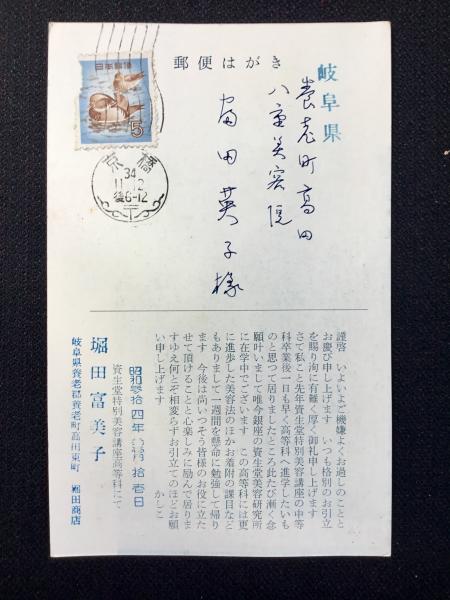 郵便はがき
日本郵便
5
京橋
34
11.12
後6-12
岐阜県
養老町高田
八重美容院
富田英子様
謹啓 いよいよご機嫌よくお過しのことと
お慶び申し上げます いつも格別のお引立
を賜り洵に有難く厚く御礼申し上げます
さて私こと先年資生堂特別美容講座の中等
科卒業後一日も早く高等科へ進学したいも
のと思つて居りましたところ此たび漸く念
願叶いまして唯今銀座の資生堂美容研究所
に在学中でございます この高等科には更
に進歩した美容法のほかお着附の課目など
もありまして一週間を懸命に勉強して帰り
ます 今後は尚いつそう皆様のお役に立た
せて頂けることと心楽しみに励んで居りま
すゆえ何とぞ相変らずお引立てのほどお願
い申し上げます かしこ
昭和参拾四年 拾壱日
資生堂特別美容講座高等科にて
堀田富美子
岐阜県養老郡養老町高田東町 堀田商店